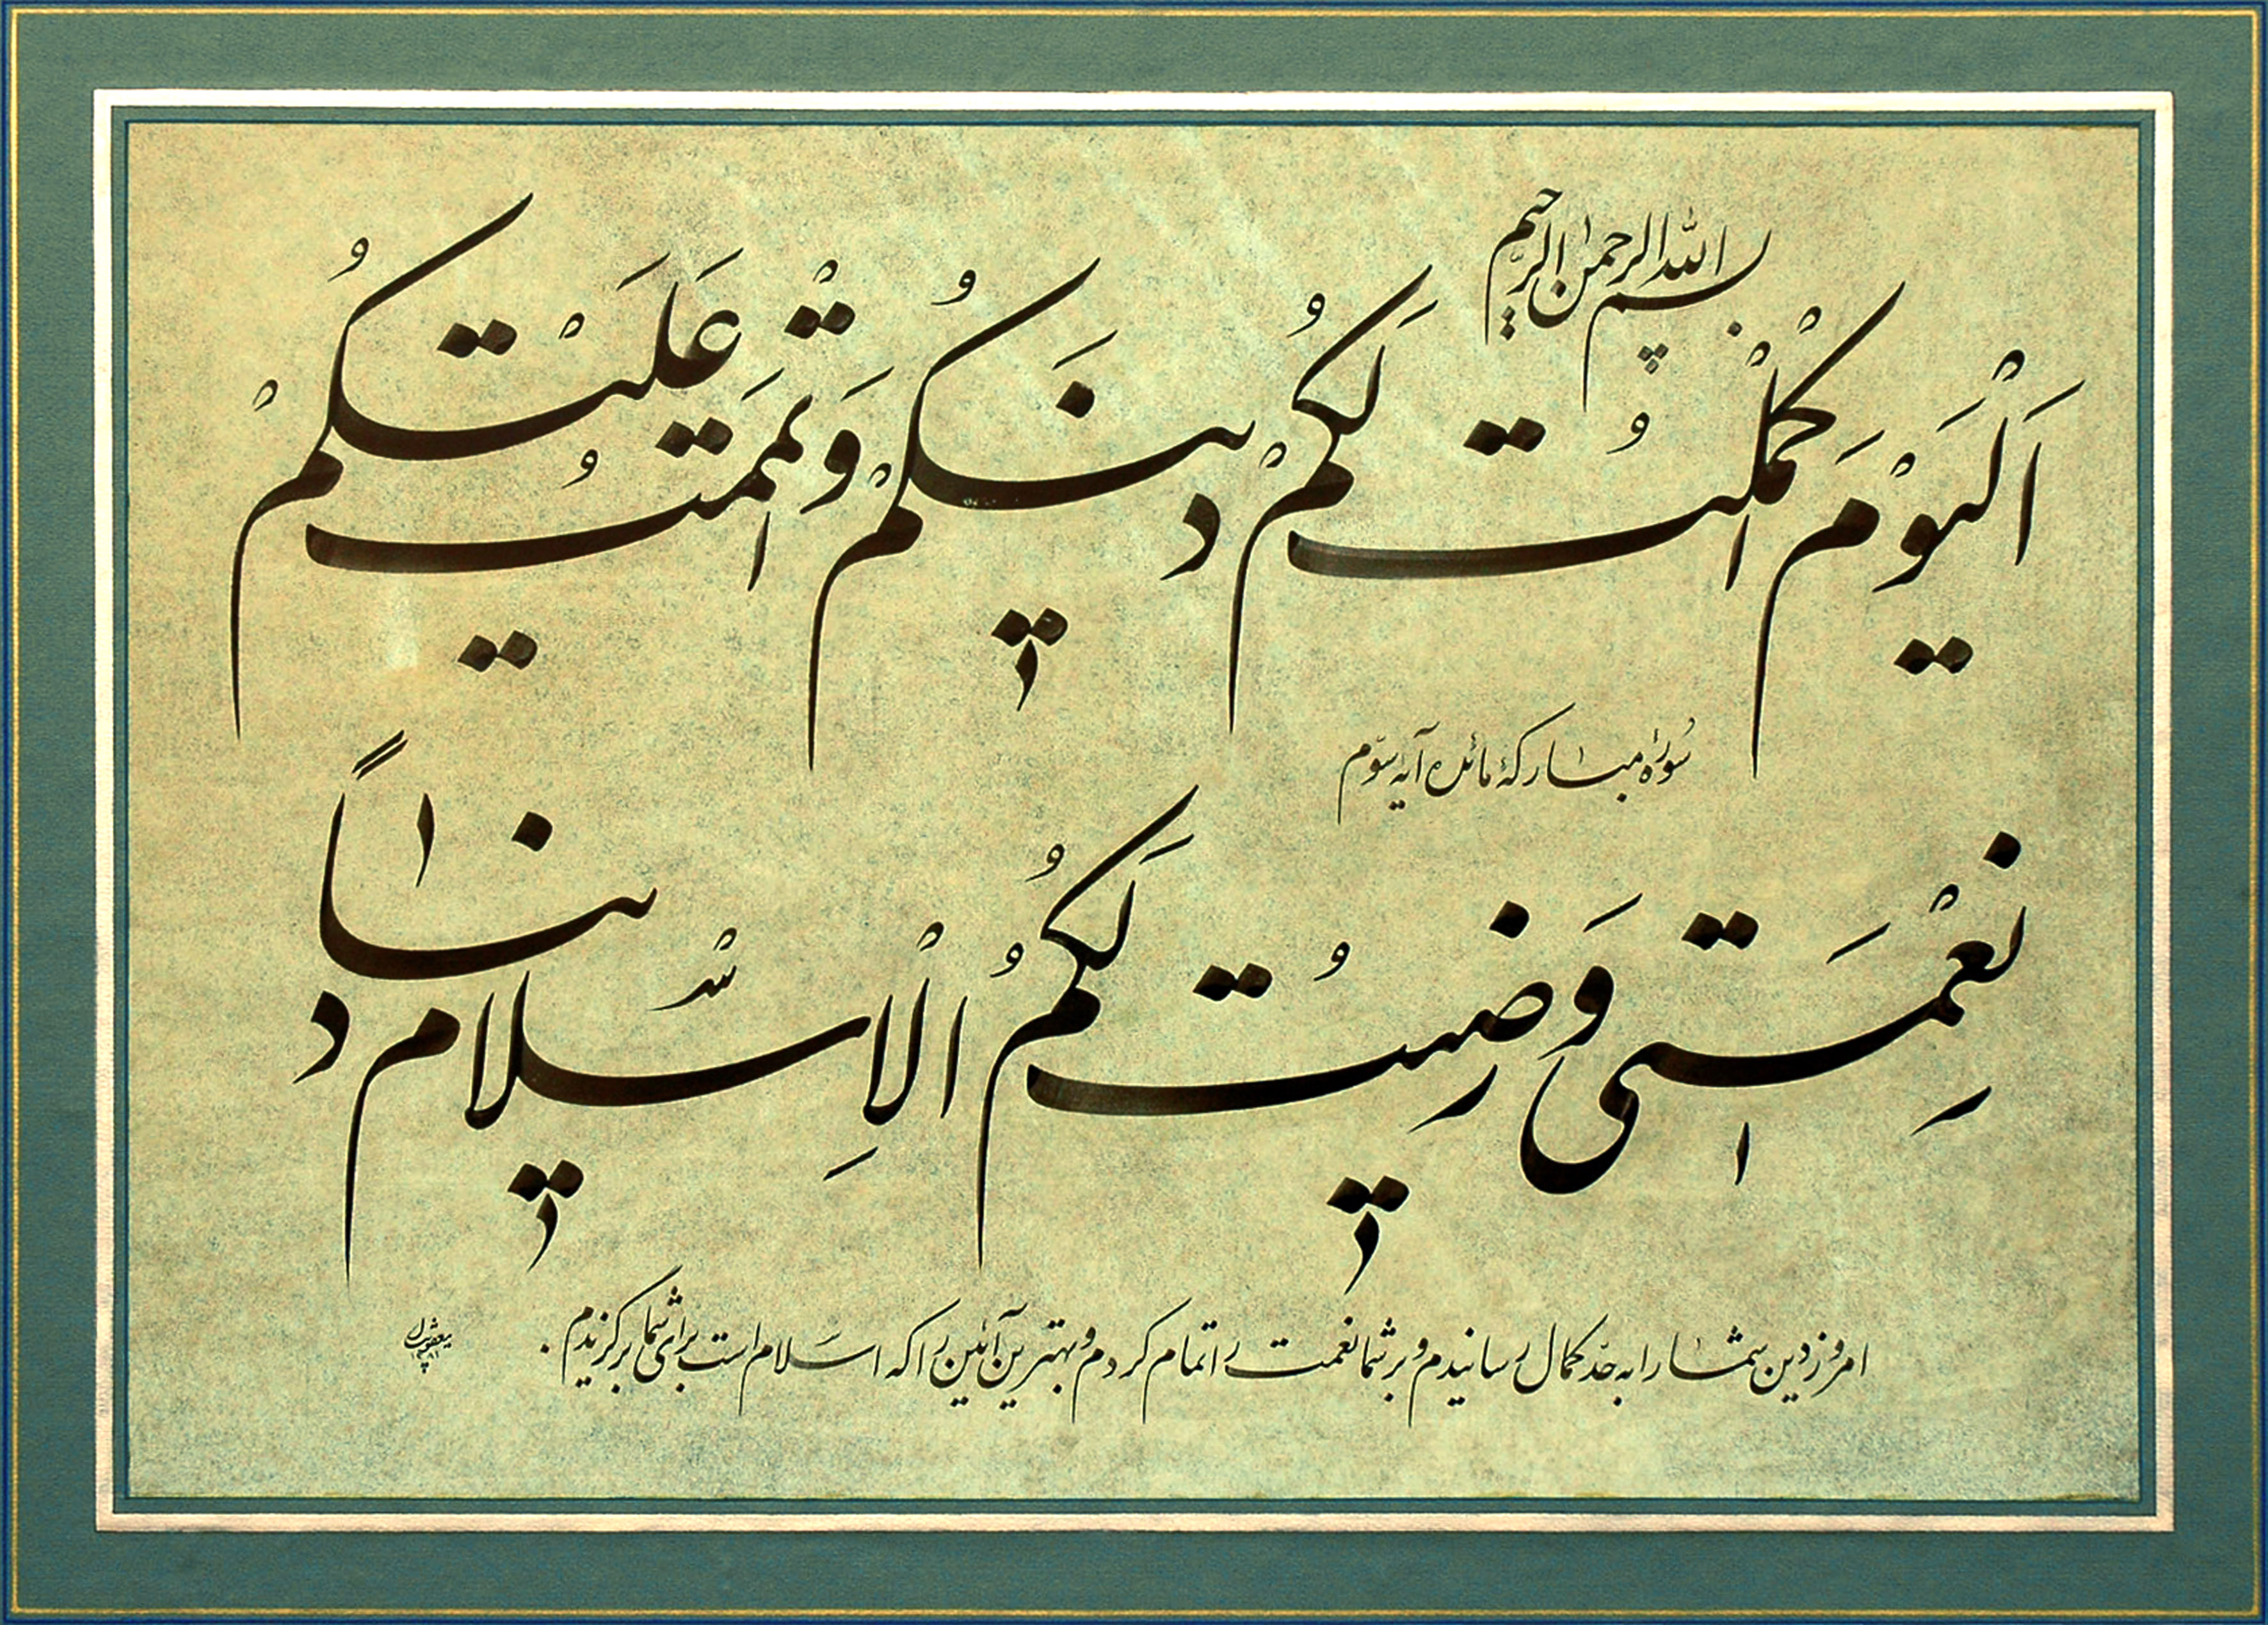 بسم الله الرحمن الرحیم
اَلْیَوْمَ اکْمَلْتُ لَکُمْ دینَکُمْ وَ اتْمَمَتُ عَلَیْتکُمْ
سُورهٔ مبارکهٔ مائده آیه سوّم
نِعْمَتی وَ رَضیتُ لَکُمُ الْاِسْلامَ دیناً
امروز دین شما را به حدّ کمال رسانیدم و بر شما نعمت را تمام کردم و بهترین آئین را که اسلام است برای شما برگزیدم.